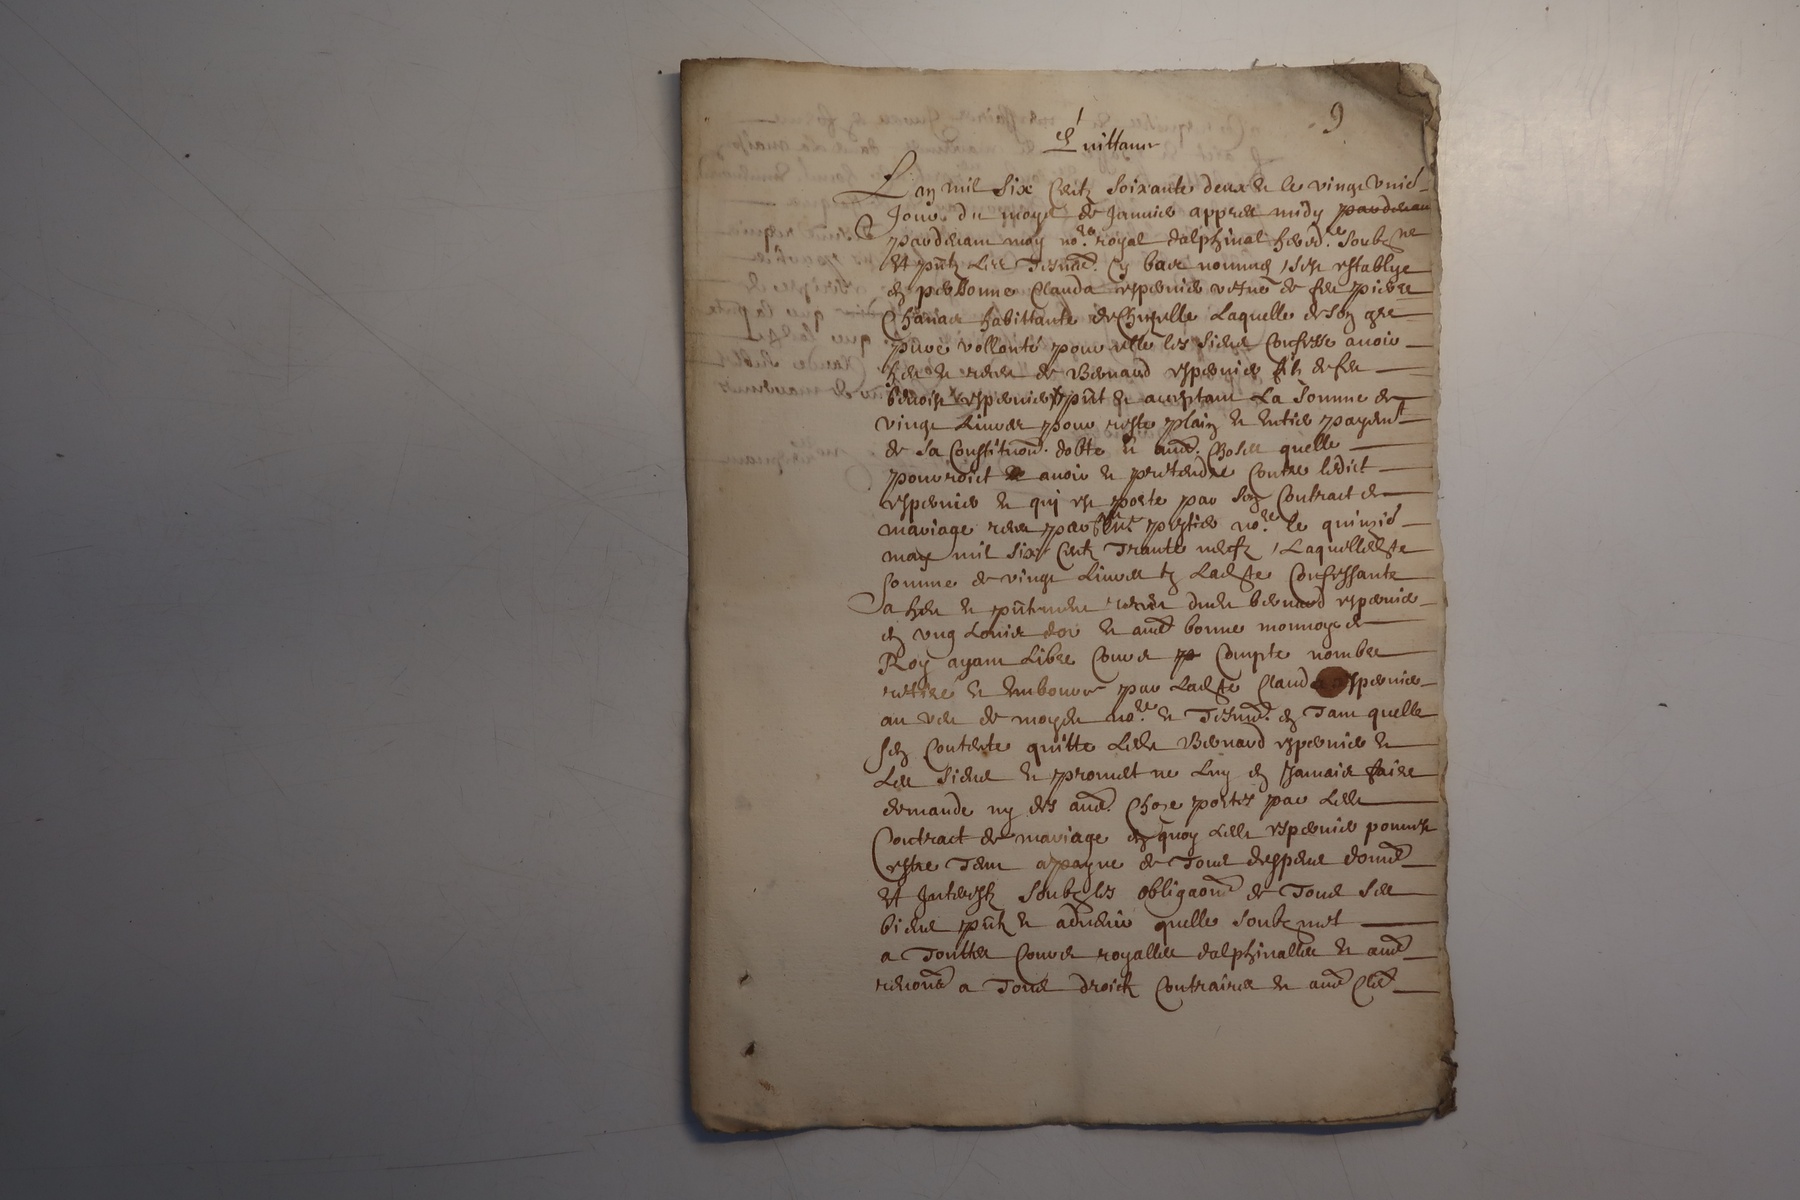 9
Quittance
L'an mil six centz soixante deux et le vingt unie
Jour du moys de Janvier appres midy pardevan
pardevant moy no.re royal dalphinal hered.re soubz ne
et pntz les tesmo. cy bas nommes, sest establye
en personne Clauda espernier vefue de feu pierre
habittante laquelle de son gre
pure vollonté pour elle les siens confesse avoir
heu et receu de Bernard espernier filz de feu
benoist espernier pnt et aceptant la somme de
vingt livres pour reste plain et entier payemt
de sa constituon. dotte et aues. choses quelle
pourroict avoir et pretendre contre ledict
espernier et qui est porte par son contract de
mariage receu par no.re le quinzie
may mil six centz trante neufz, laquelle dte
somme de vingt livres tz ladte confessante
a heu et pntement receu dudt bernard espernier
en ung Louis dor et aue bonne monnoye de
Roy ayant libre cours compte nombre
retire et embource par ladte Clauda espernier
au veu de moyd no.re et tesmo. en tant quelle
sen contente quitte ledt Bernard espernier et
les siens et promet ne luy en jamais faire
demande ny des aues. chose portes par ledt
contract de mariage en quoy ledt espernier
estre tenu a payne de tous despens domes
et jnterestz soubz les obligaons de tous ses
biens pntz et advenir quelle soubzmet
a touttes cours royalles dalphinalles et aues
renonce a tous droictz contraires et aues cles